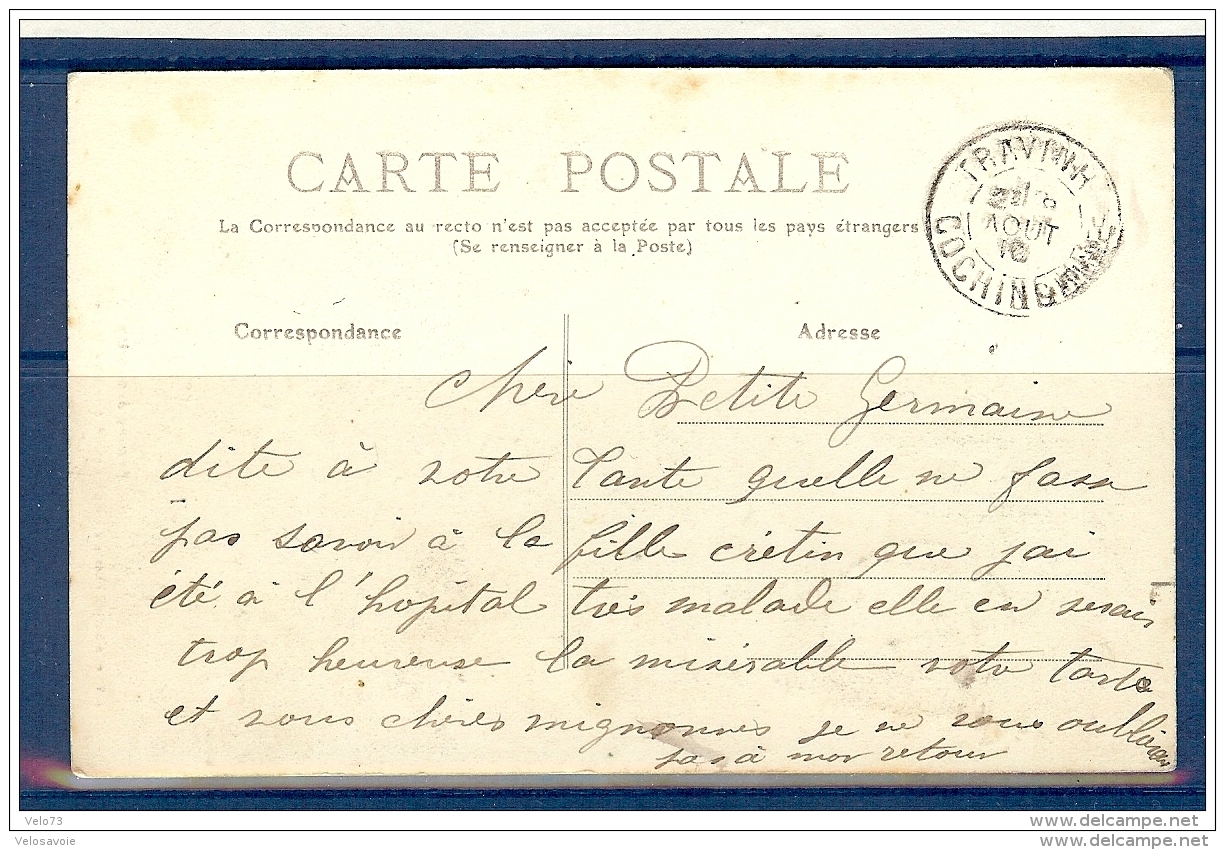 CARTE POSTALE
La Correspondance au recto n'est pas acceptée par tous les pays étrangers
(Se renseigner à la Poste)
TRAVINH
AOUT
10
COCHINCHINE
Correspondance
Adresse
chère Petite Germaine
dite à votre tante quelle ne fasse
pas savoir à la fille crétin que jai
été à l'hopital très malade elle en serais
trop heureuse la misérable votre tante
et vous chères mignonnes je ne vous oublierai
pas à mon retour
Velo73
Velosavoie
delcampe.net
delcampe.net